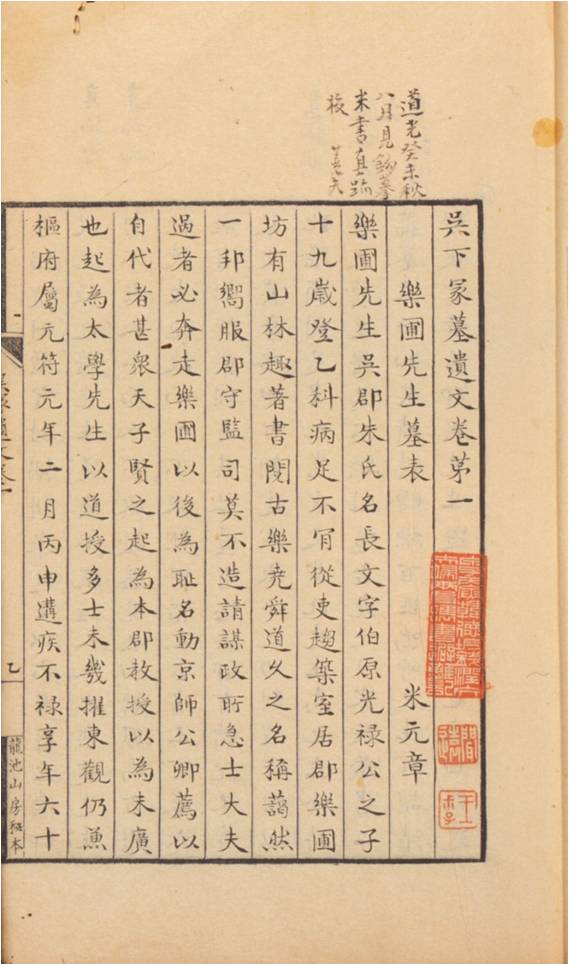 道光癸未秋
八月見鉤摹
米書真跡
校
吳下冢墓遺文卷第一
樂圃先生墓表 米元章
樂圃先生吳郡朱氏名長文字伯原光祿公之子
十九歲登乙科病足不肎從吏趨築室居郡樂圃
坊有山林趣著書閱古樂堯舜道乆之名稱藹然
一邦嚮服郡守監司莫不造請謀政所急士大夫
過者必奔走樂圃以後為恥名動京師公卿薦以
自代者甚衆天子賢之起為本郡教授以為未廣
也起為太學先生以道授多士未幾擢東觀仍兼
樞府屬元符元年二月丙申遘疾不祿享年六十
乙
龍池山房